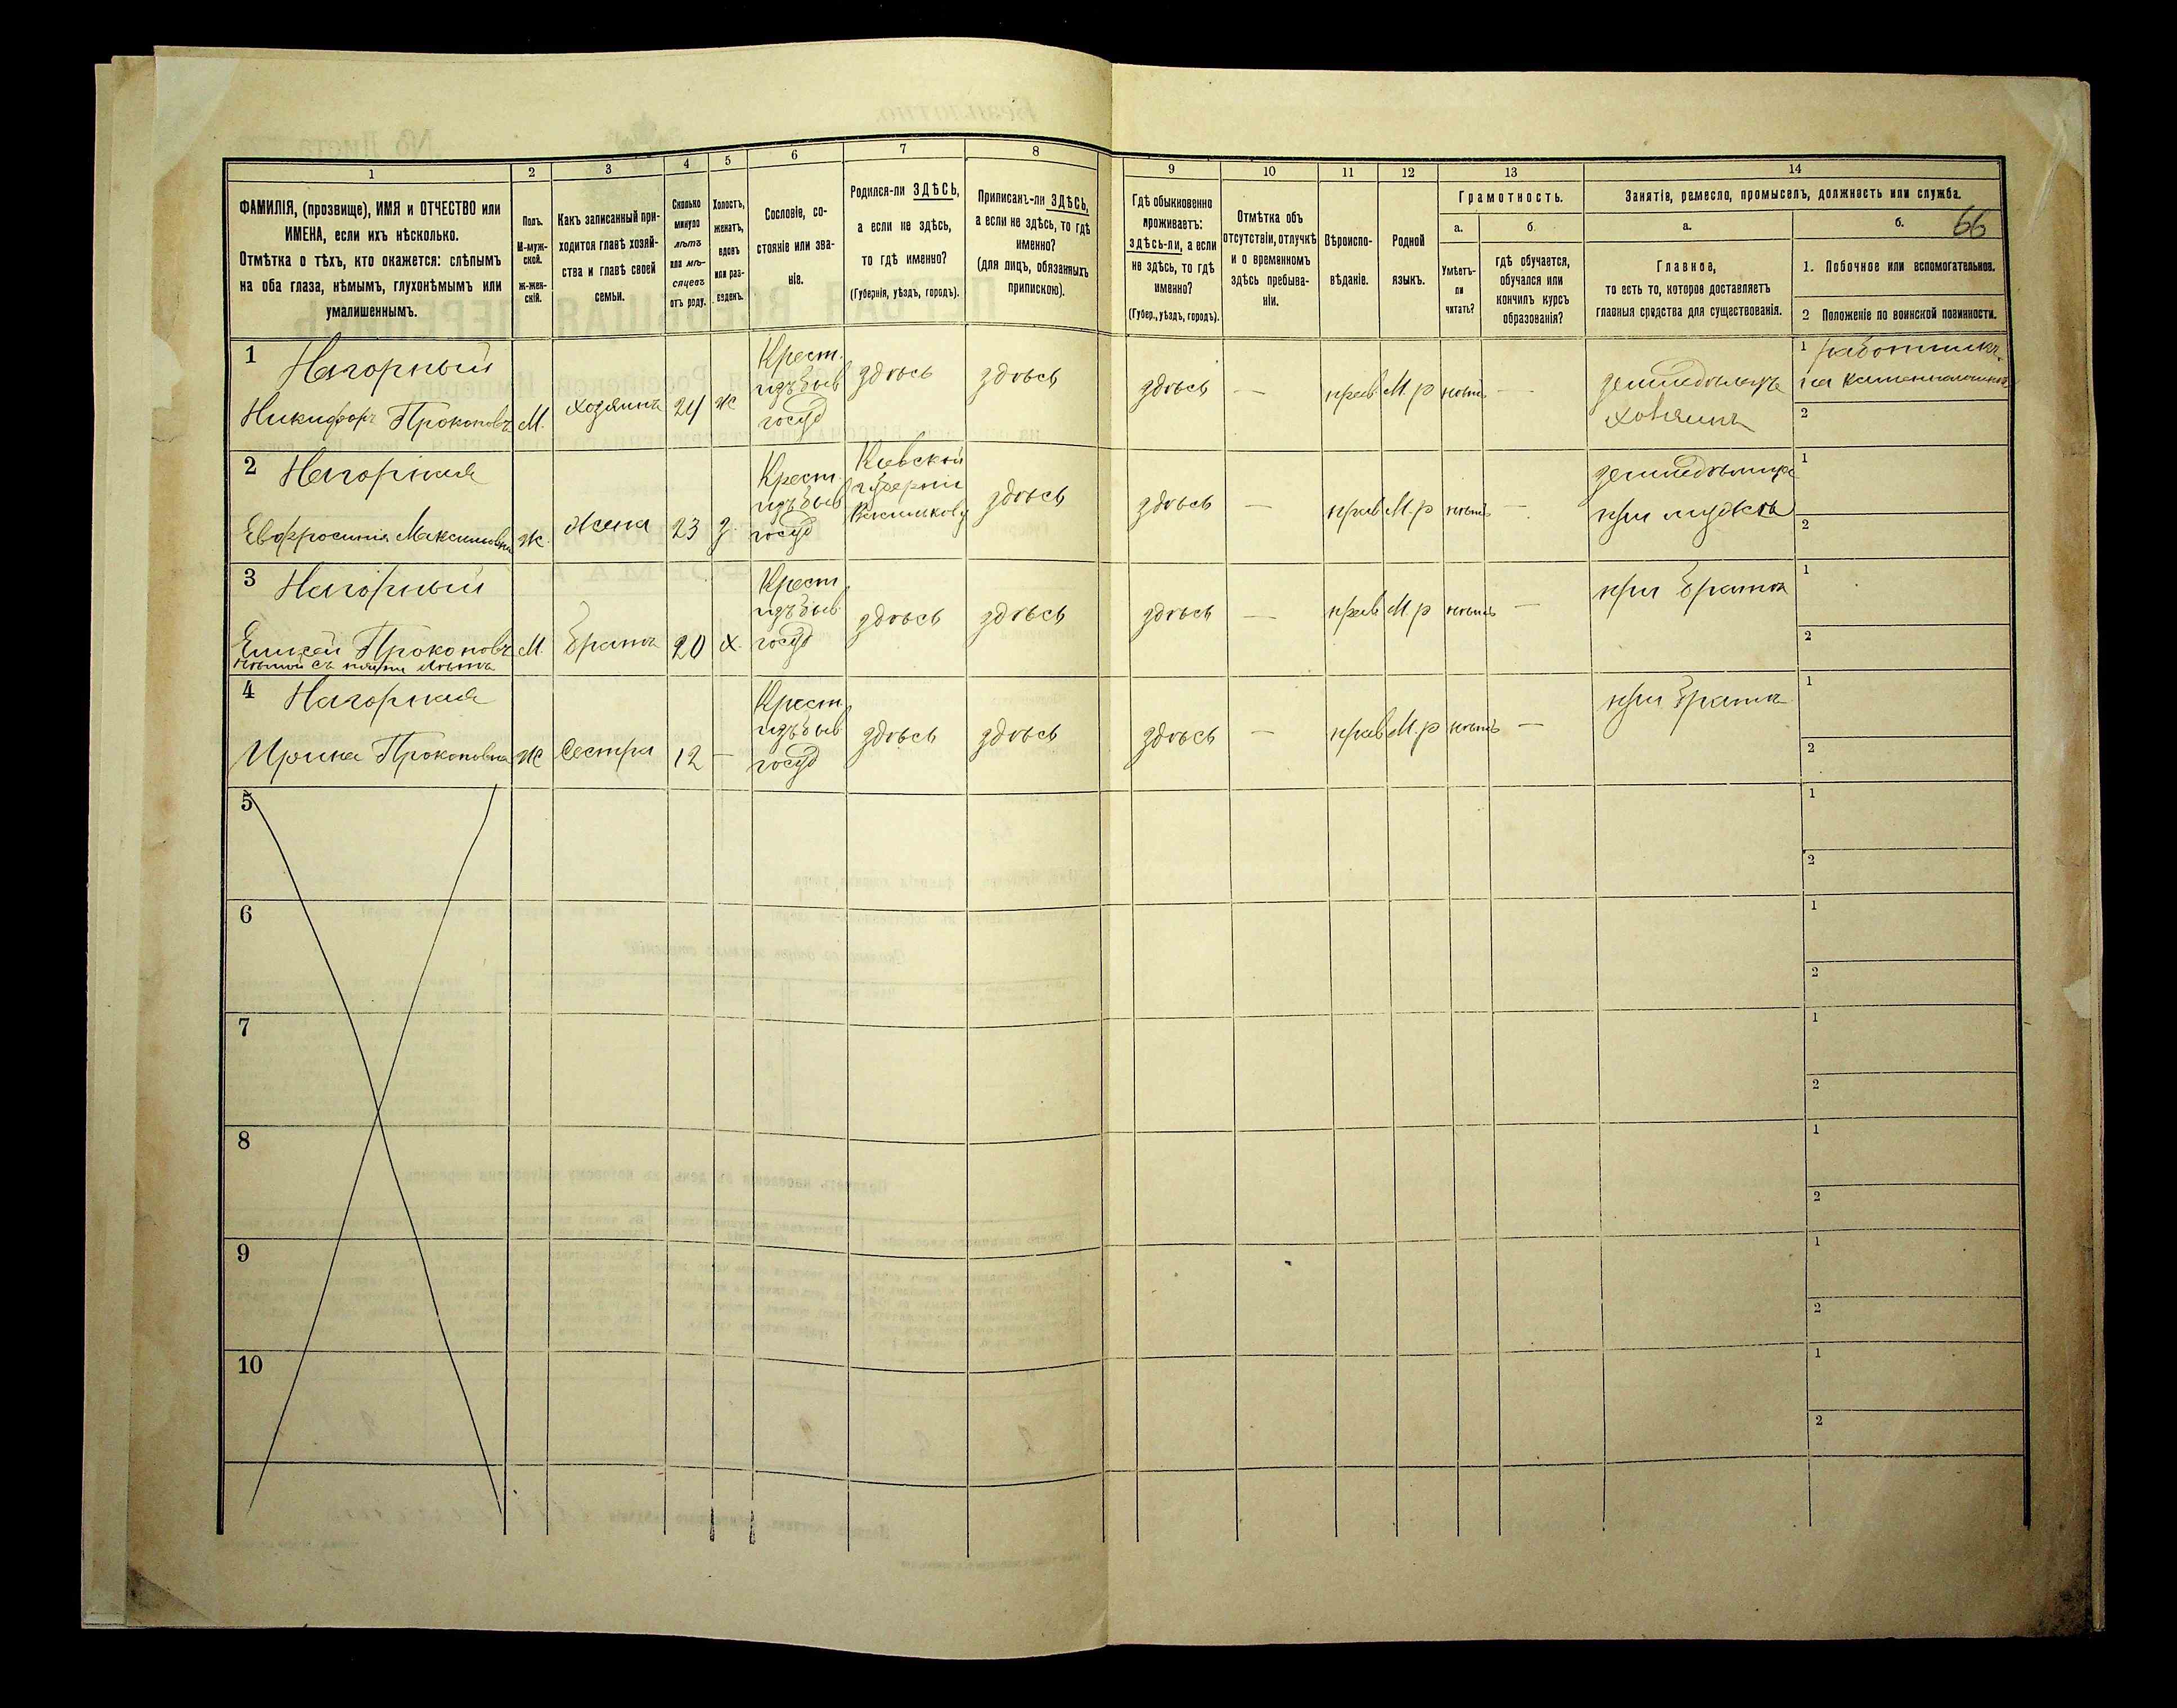 1 2 3 4 5 6 7 8 9 10 11 12 13 14
ФАМИЛІЯ, (прозвище), ИМЯ и ОТЧЕСТВО или
ИМЕНА, если ихъ нѣсколько.
Отмѣтка о тѣхъ, кто окажется: слѣпымъ
на оба глаза, нѣмымъ, глухонѣмымъ или
умалишеннымъ.
Полъ.
М-муж-
ской.
Ж-жен-
скій.
Какъ записанный при-
ходится главѣ хозяй-
ства и главѣ своей
семьи.
Сколько
минуло
лѣтъ
или мѣ-
сяцевъ
отъ роду.
Холостъ,
женатъ,
вдовъ
или раз-
веденъ.
Сословіе, со-
стояніе или зва-
ніе.
Родился-ли ЗДѢСЬ,
а если не здѣсь,
то гдѣ именно?
(Губернія, уѣздъ, городъ).
Приписанъ-ли ЗДѢСЬ,
а если не здѣсь, то гдѣ
именно?
(для лицъ, обязанныхъ
припискою).
Гдѣ обыкновенно
проживаетъ:
здѣсь-ли, а если
не здѣсь, то гдѣ
именно?
(Губер., уѣздъ, городъ).
Отмѣтка объ
отсутствіи, отлучкѣ
и о временномъ
здѣсь пребыва-
ніи.
Вѣроиспо-
вѣданіе.
Родной
языкъ.
Грамотность.
а.
Умѣетъ-
ли
читать?
б.
гдѣ обучается,
обучался или
кончилъ курсъ
образованія?
Занятія, ремесло, промыселъ, должность или служба.
а.
Главное,
то есть то, которое доставляетъ
главныя средства для существованія.
б.
66
1. Побочное или вспомогательное.
2 Положеніе по воинской повинности.
1 Нагорный
Никифоръ Прокоповъ
М.
хозяинъ
24
ж
Крест.
изъ быв
госуд
здѣсь
здѣсь
здѣсь
—
прав.
М. р
нѣтъ
—
земледѣлецъ
хозяинъ
1 работникъ
на
2
2 Нагорная
Евфросинія Максимовна
ж.
жена
23
з.
Крест.
изъ быв
госуд
Кіевской
губерніи
Васильков у
здѣсь
здѣсь
—
прав
М. р
нѣтъ
—
земледѣлица
при мужѣ
1
2
3 Нагорный
Елисей Прокоповъ
нѣмой съ пяти лѣтъ
М.
братъ
20
х.
Крест
изъ быв.
госуд
здѣсь
здѣсь
здѣсь
—
прав
М. р
нѣтъ
—
при братѣ
1
2
4 Нагорная
Ирина Прокоповна
Ж
Сестра
12
—
Крест.
изъ быв
госуд
здѣсь
здѣсь
здѣсь
—
прав
М. р
нѣтъ
—
при братѣ
1
2
5
1
2
6
1
2
7
1
2
8
1
2
9
1
2
10
1
2